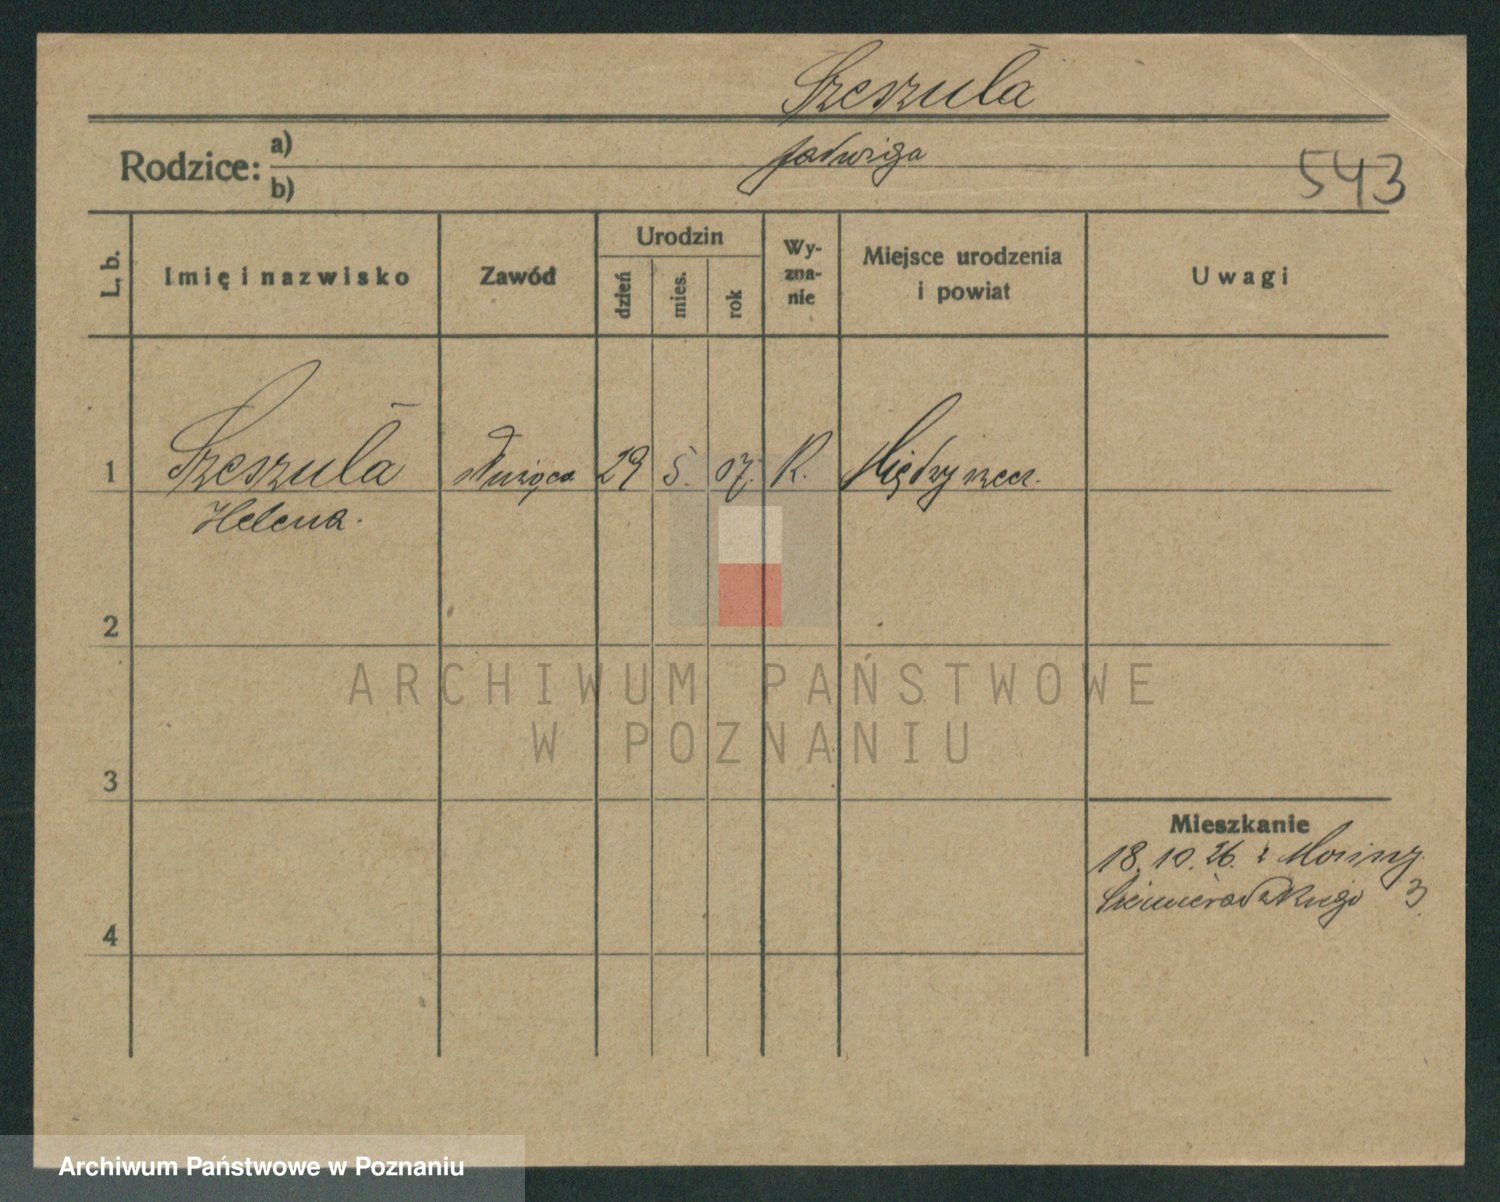 Szeszuła
Rodzice: a) Jadwiga
b)
543
L. b.
Imię i nazwisko
Zawód
Urodzin
dzień
mies.
rok
Wy-
zna-
nie
Miejsce urodzenia
i powiat
Uwagi
1 Szeszuła służąca 29 5. 07. R. Międzyrzecz.
Helena.
2
3
4
Mieszkanie
18.10.26. z Mosiny
Siemieradzkiego 3
ARCHIWUM PAŃSTWOWE
W POZNANIU
Archiwum Państwowe w Poznaniu